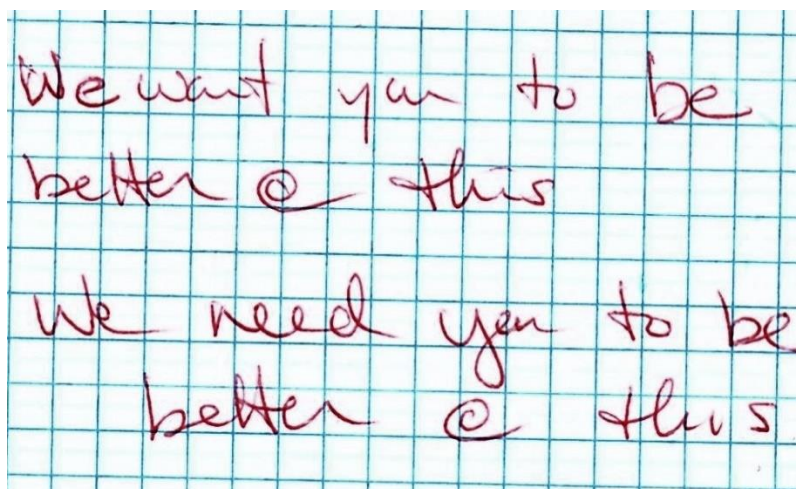 We want you to be
better @ this
We need you to be
better @ this